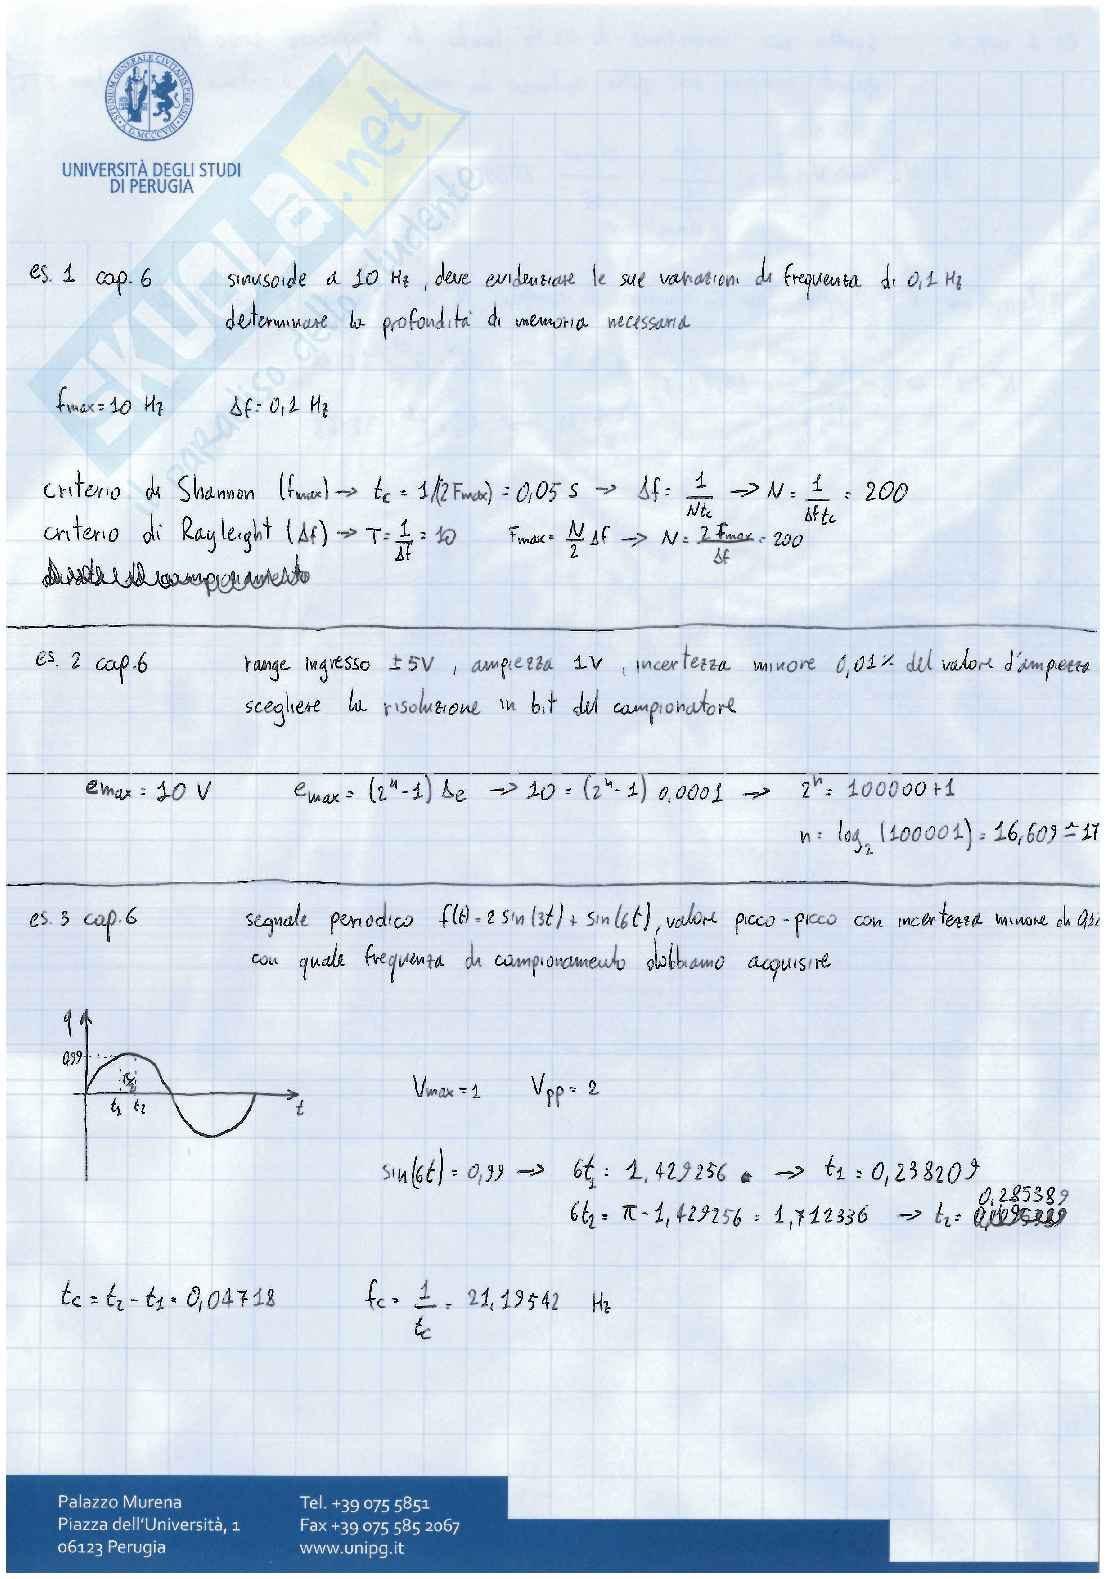 UNIVERSITÀ DEGLI STUDI
DI PERUGIA
SKUOLA.net
il paradiso dello studente
es. 1 cap. 6 sinusoide a 10 Hz, deve evidenziare le sue variazioni di frequenza di 0,1 Hz
determinare la profondità di memoria necessaria
fmax = 10 Hz Δf = 0,1 Hz
criterio di Shannon (fmax) → tc = 1/(2 Fmax) = 0,05 s → Δf = 1/(N tc) → N = 1/(Δf tc) = 200
criterio di Rayleight (Δf) → T = 1/Δf = 10 Fmax = N/2 Δf → N = 2 Fmax/Δf = 200
es. 2 cap. 6 range ingresso ± 5V, ampiezza 1V, incertezza minore 0,01% del valore d'ampiezza
scegliere la risoluzione in bit del campionatore
emax = 10 V emax = (2ⁿ - 1) Δe → 10 = (2ⁿ - 1) 0,0001 → 2ⁿ = 100000 + 1
n = log₂ (100001) = 16,609 ≐ 17
es. 3 cap. 6 segnale periodico f(t) = 2 sin(3t) + sin(6t), valore picco-picco con incertezza minore di
con quale frequenza di campionamento dobbiamo acquisire
0,99
t1 t2 t
Vmax = 1 Vpp = 2
sin(6t) = 0,99 → 6t1 = 1,429256 → t1 = 0,238209
6t2 = π - 1,429256 = 1,712336 → t2 = 0,285389
tc = t2 - t1 = 0,04718 fc = 1/tc = 21,19542 Hz
Palazzo Murena
Piazza dell'Università, 1
06123 Perugia
Tel. +39 075 5851
Fax +39 075 585 2067
www.unipg.it